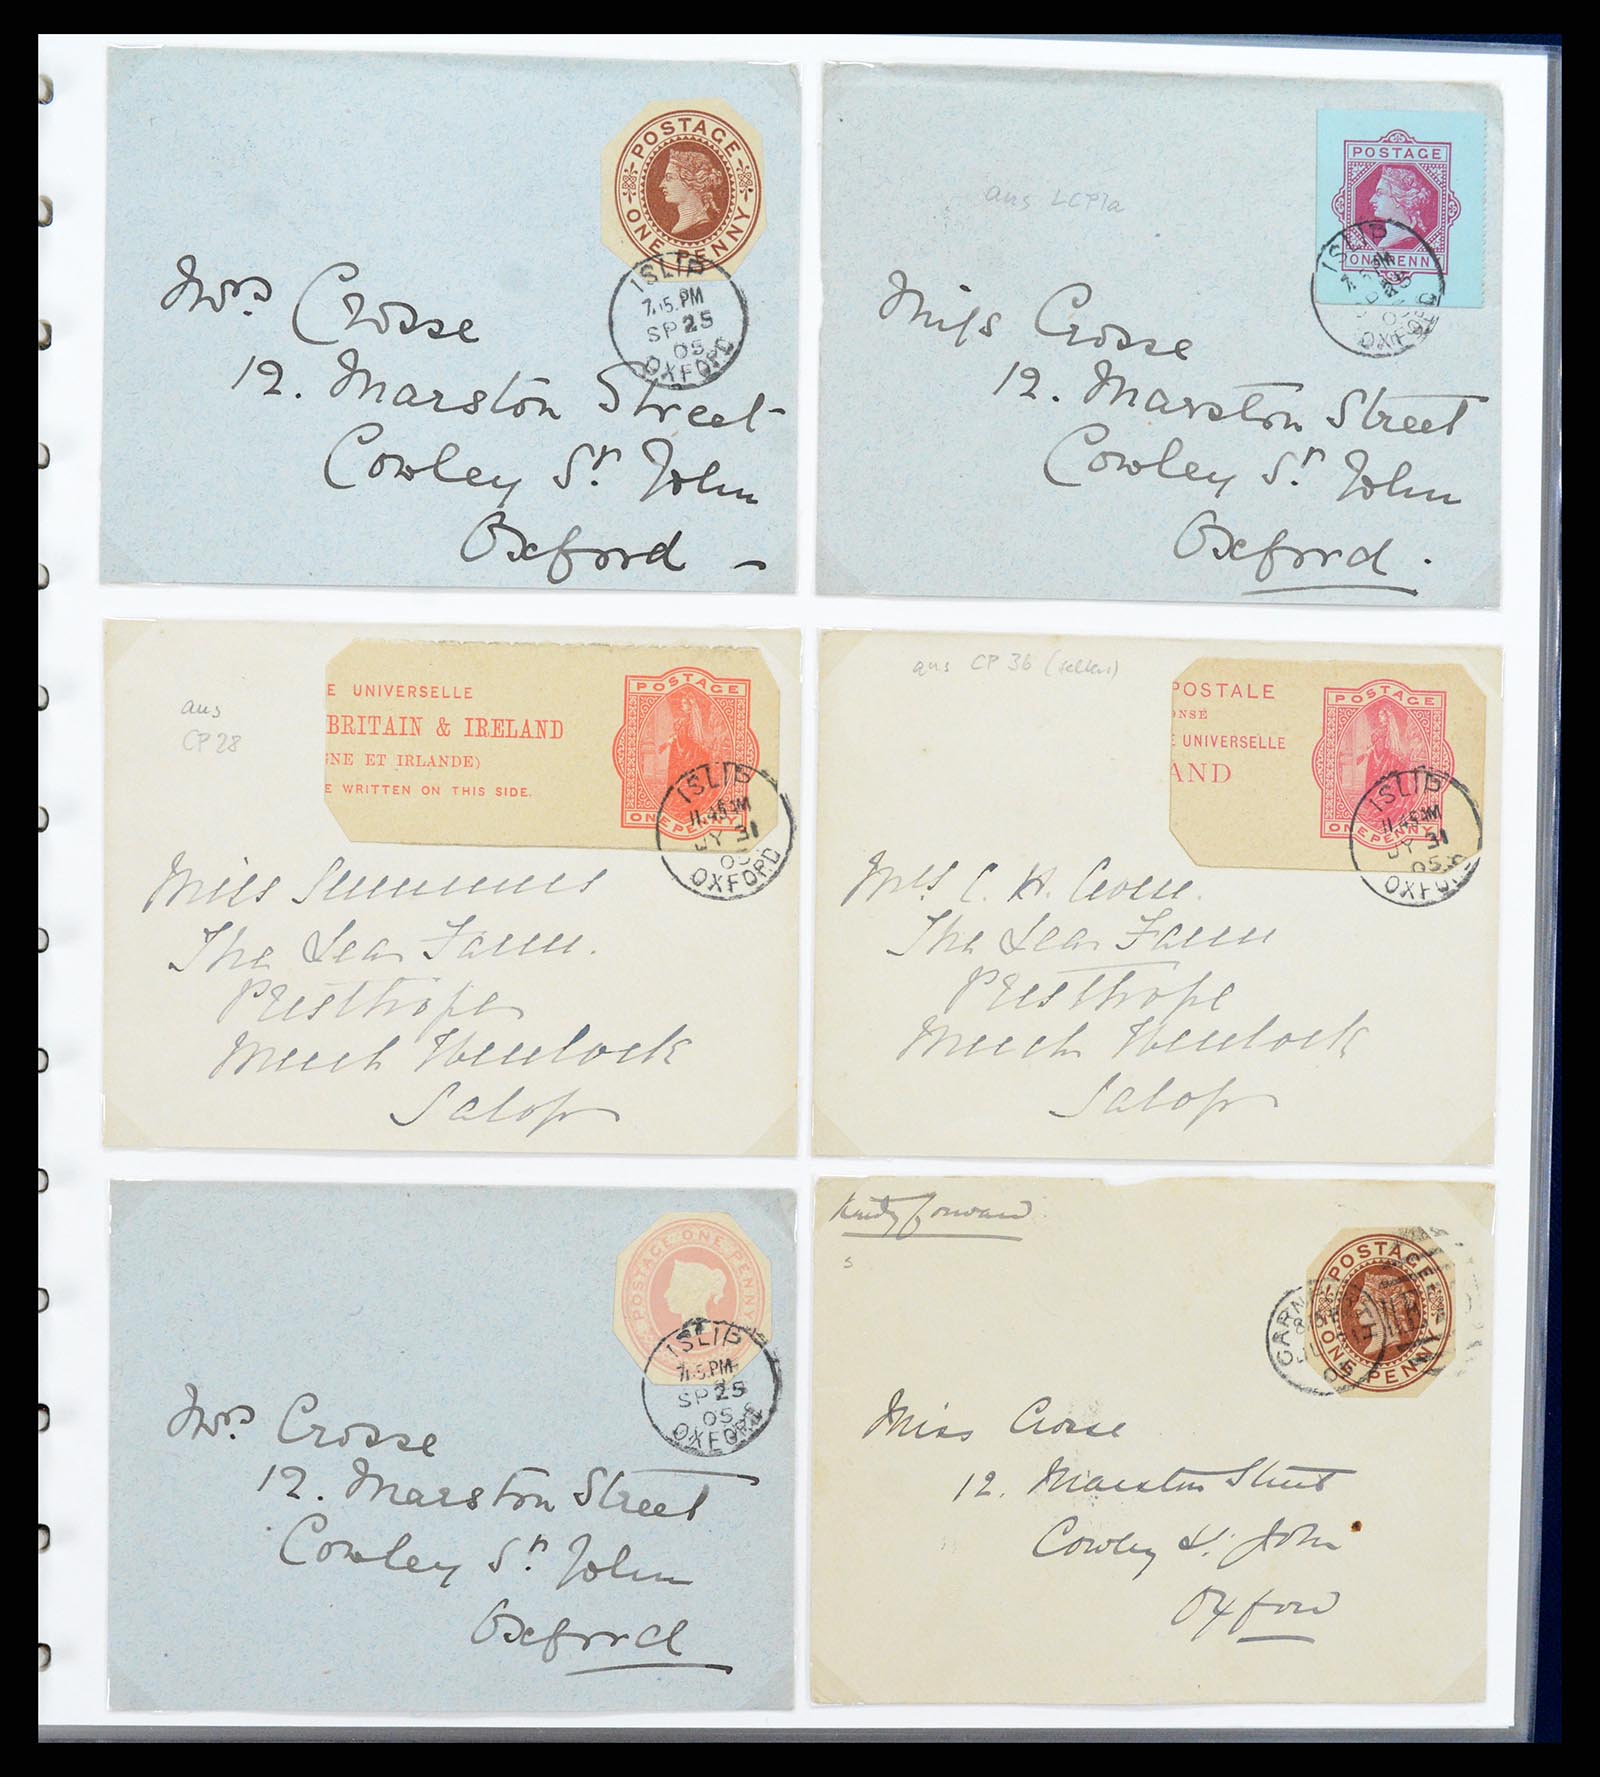 POSTAGE
ONE PENNY
ISLIP
7.15.PM
SP 25
05
OXFORD
Mrs Crosse
12. Marston Street
Cowley St. John
Oxford
aus LCP1a
POSTAGE
ONE PENNY
ISLIP
OXFORD
Miss Crosse
12. Marston Street
Cowley St. John
Oxford.
aus
CP 28
E UNIVERSELLE
BRITAIN & IRELAND
NE ET IRLANDE)
E WRITTEN ON THIS SIDE.
POSTAGE
ONE PENNY
ISLIP
11.45AM
JY 31
05
OXFORD
Miss
The Lea Farm.
Presthope
Much Wenlock
Salop
aus CP 36 (selten)
POSTALE
ONSE
E UNIVERSELLE
AND
POSTAGE
ONE PENNY
ISLIP
11.45AM
JY 31
05
OXFORD
C. H.
The Lea Farm
Presthope
Much Wenlock
Salop
POSTAGE ONE PENNY
ISLIP
7.15.PM
SP 25
05
OXFORD
Mrs Crosse
12. Marston Street
Cowley St. John
Oxford
Kindly forward
s
POSTAGE
ONE PENNY
Miss Crosse
12. Marston Street
Cowley St. John
Oxford